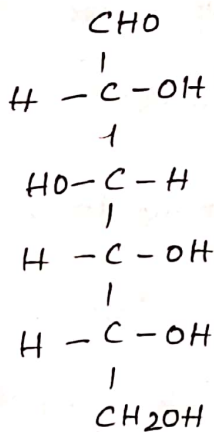 CHO
H - C - OH
HO - C - H
H - C - OH
H - C - OH
CH2OH